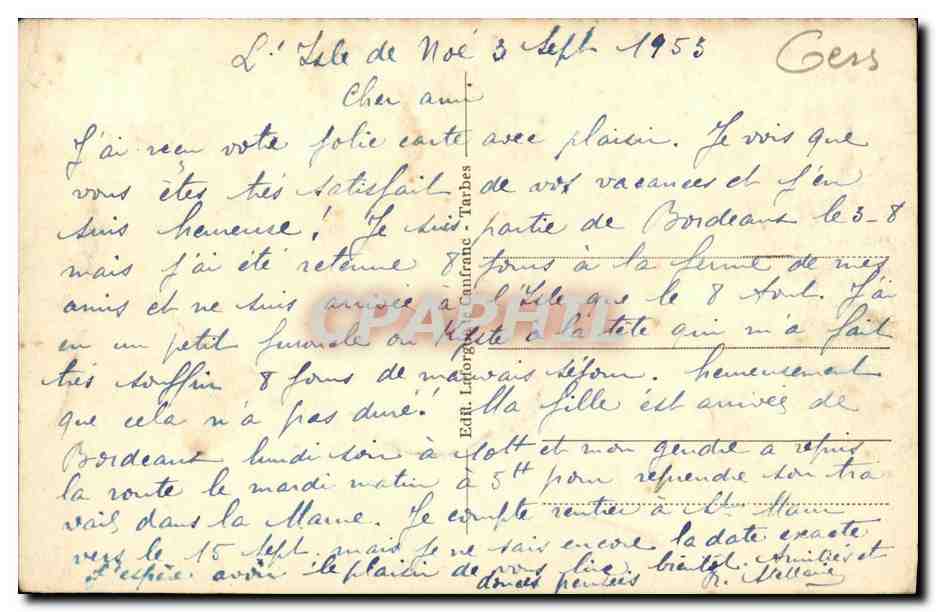 L'Isle de Noé 3 Sept 1953
Gers
Cher ami
J'ai recu votre jolie carte avec plaisir. Je vois que
vous êtes très satisfait de vos vacances et j'en
suis heureuse! Je suis partie de Bordeaux le 3-8
mais j'ai été retenue 8 jours à la ferme de mes
amis et ne suis arrivée à l'Isle que le 8 Aout. J'ai
eu un petit furoncle ou Kyste à la tête qui m'a fait
très souffrir 8 jours de mauvais séjour. heureusement
que cela n'a pas duré! Ma fille est arrivée de
Bordeaux lundi soir à et mon gendre a repris
la route le mardi matin à 5H pour reprendre son tra
vail dans la Marne. Je compte rentrer à St Maur
vers le 15 Sept. mais je ne sais encore la date exacte
J'espère avoir le plaisir de vous lire bientôt. Amitiés et
douces pensées
Edit. Laforgue, Canfranc, Tarbes
CPAPHIL